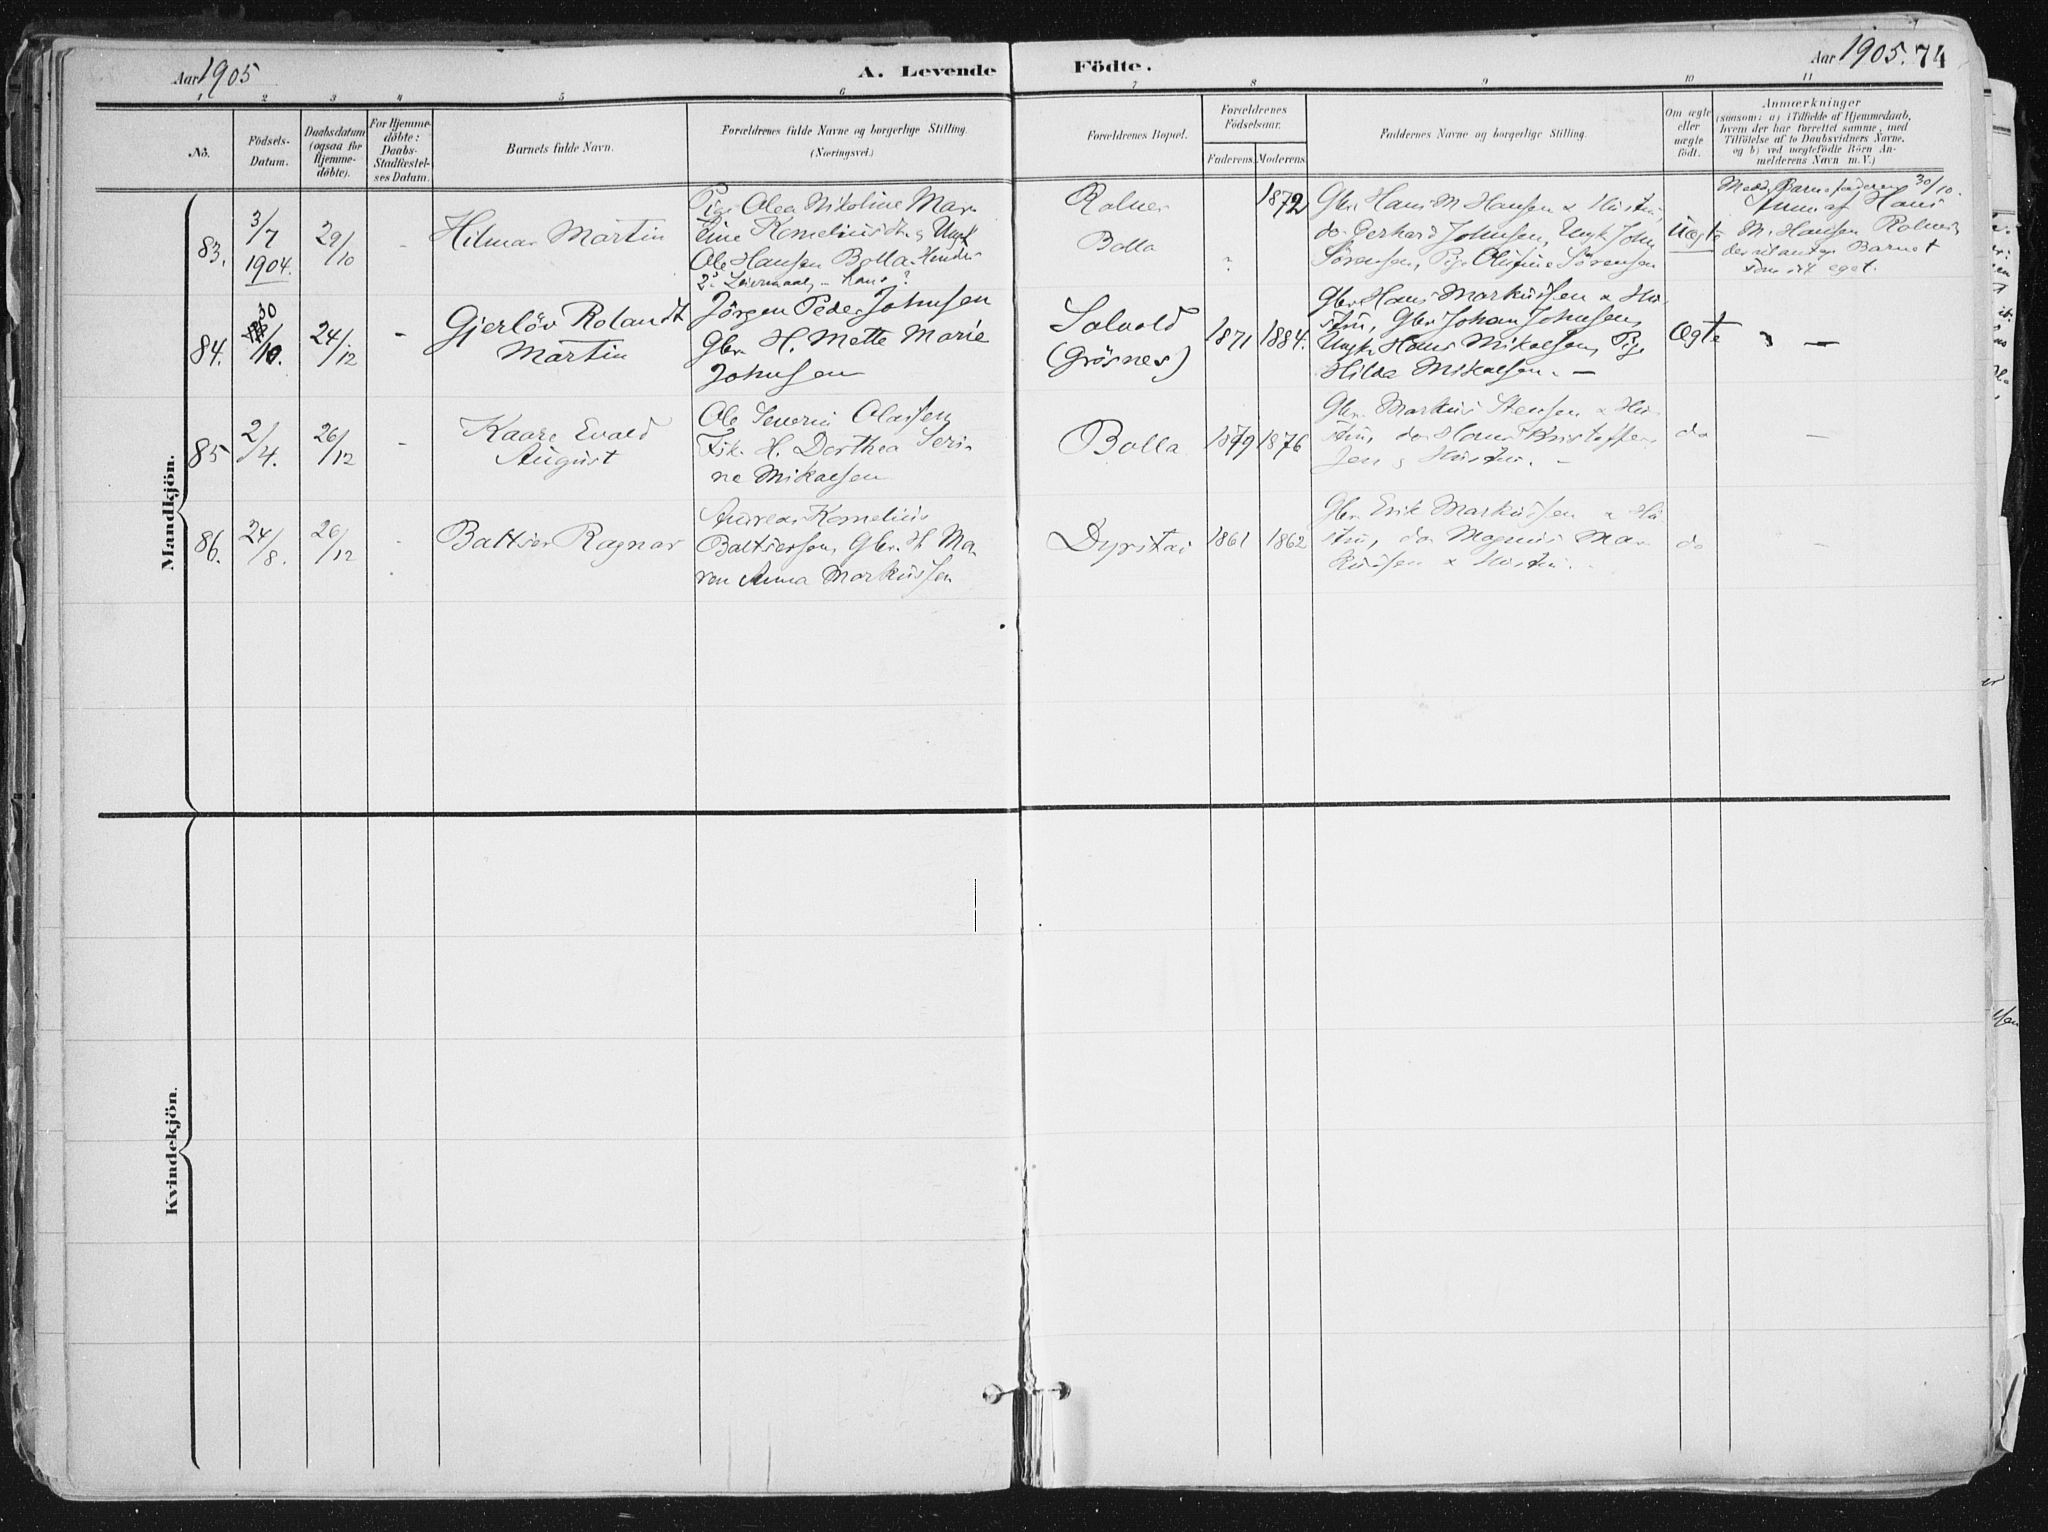 Aar 1905
A. Levende Födte.
Aar 1905. 74
1 2 3 4 5 6 7 8 9 10 11
No.
Födsels-
Datum.
Daabsdatum
(ogsaa for
Hjemme-
döbte).
For Hjemme-
döbte:
Daabs-
Stadfæstel-
ses Datum.
Barnets fulde Navn.
Forældrenes fulde Navne og borgerlige Stilling.
(Næringsvei.)
Forældrenes Bopæl.
Forældrenes
Födselsaar.
Faderens. Moderens.
Faddernes Navne og borgerlige Stilling.
Om ægte
eller
uægte
født.
Anmærkninger
(saasom: a) i Tilfælde af Hjemmedaab,
hvem der har forrettet samme, med
Tilföielse af to Daabsvidners Navne,
og b) ved uægtefödte Börn An-
melderens Navn m. V.)
Mandkjön.
83.
3/7
1904.
29/10
-
Hilmar Martin
Pige Olea Nikoline Mar
line Korneliusdtr. & Ungk
Ole Hansen Bolla. Hendes
2. Leiermaal, - hans ?
Rolnes
Bolla
?
1872
Gbr. Hans M Hansen & Hustru,
do Gerhard Johnsen, Ungk John
Sörensen, Pige Olufine Sörensen
Uægte
30/10.
af Hans
M. Hansen Rolnes,
Barnet
som sit eget.
84.
30/10.
24/12
-
Gjerlöv Rolandt
Martin
Jörgen Peder Johnsen
Gbr. H. Mette Marie
Johnsen
Solvold
(Grösnes)
1871 1884.
Gbr Hans Markussen & Hu-
stru, Gbr Johan Johnsen,
Ungk Hans Mikalsen, Pige
Hilda Mikalsen. —
Ægte
—
85
2/4.
26/12
-
Kaare Evald
August
Ole Severin Olausen
Fisk. H. Dorthea Seri-
ne Mikalsen
Bolla
1879 1876
Gbr. Markus Stensen & Hu-
stru, do Hans Kristoffer-
sen & Hustru. -
do
—
86.
24/8.
26/12
-
Baltser Ragnar
Andreas Kornelius
Baltsersen, Gbr. H. Ma-
ren Anna Markussen
Dyrstad
1861 1862
Gbr Erik Markussen & Hu-
stru, do Magnus Mar
kussen & Hustru. -
do
—
Kvindekjön.